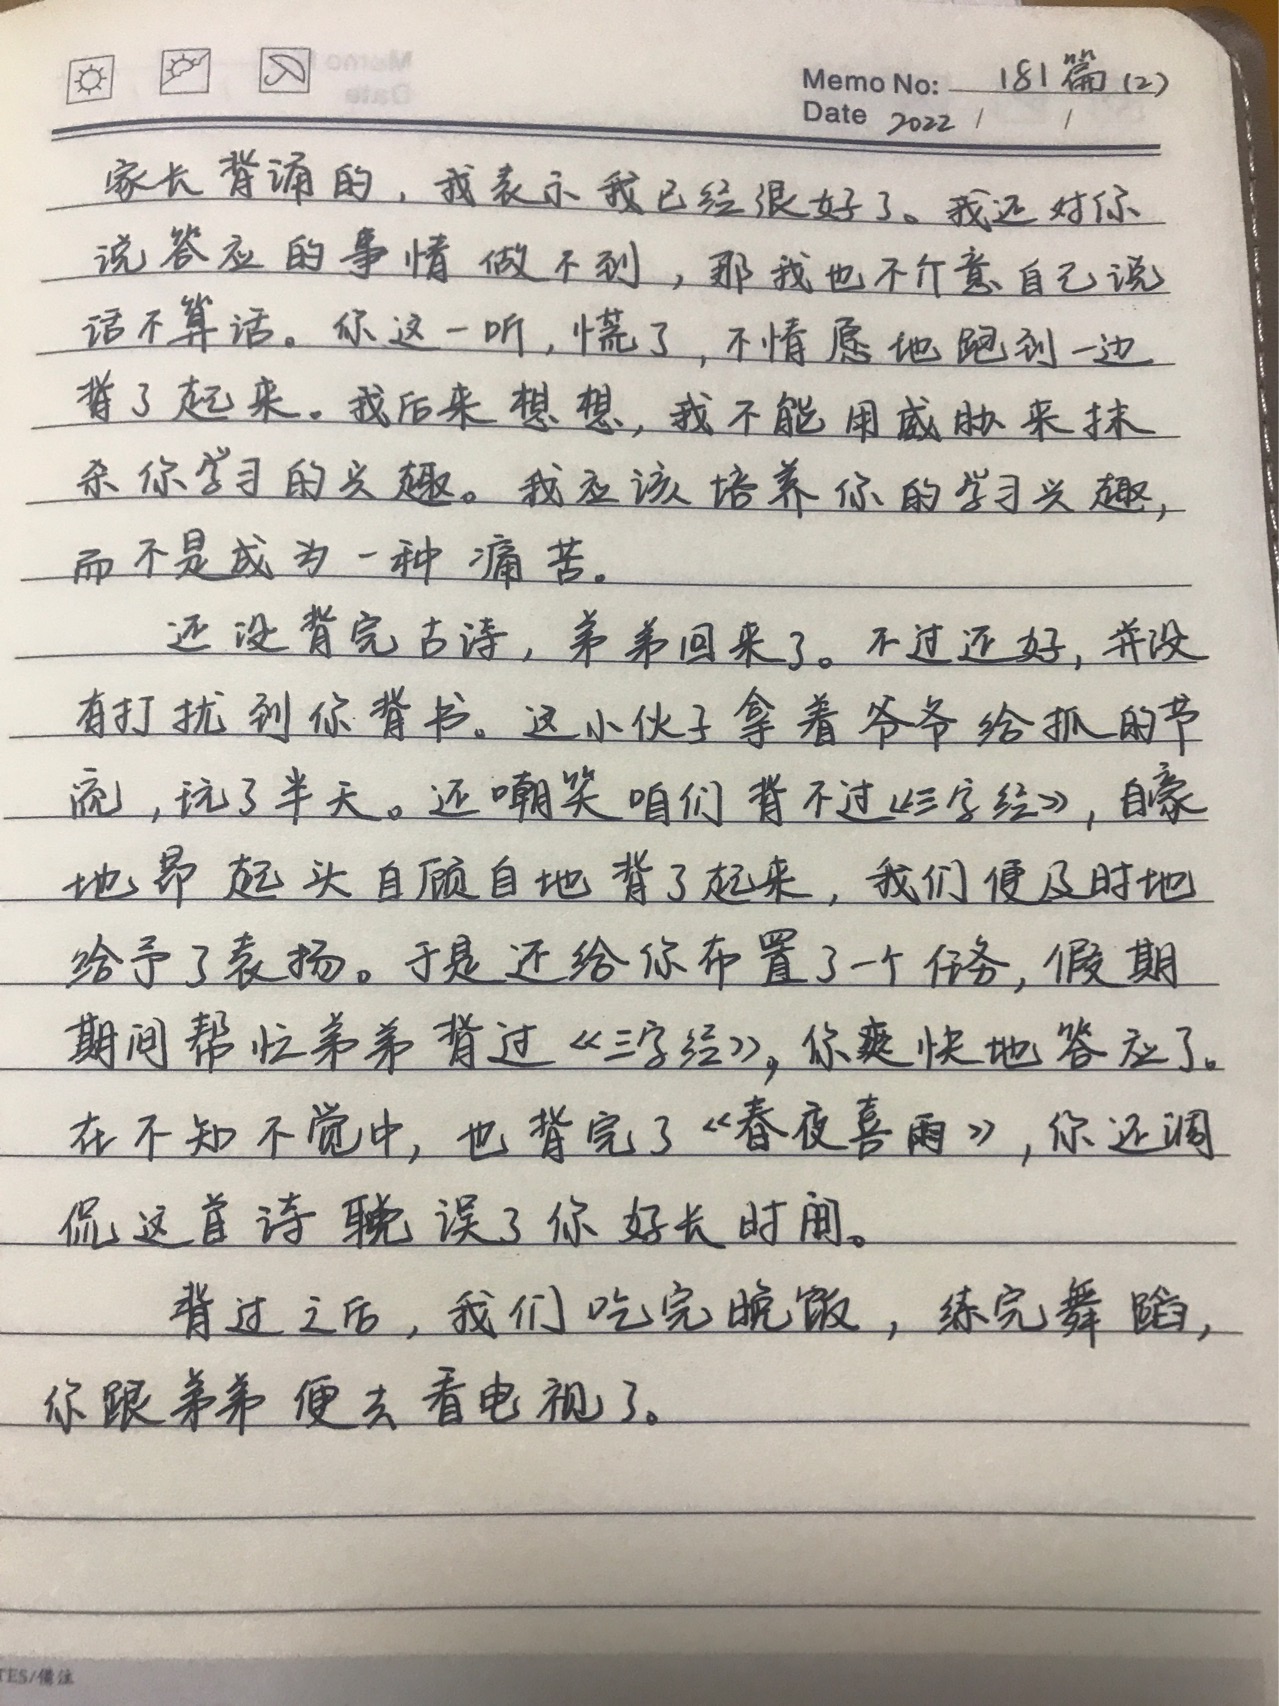 Memo No: 181篇(2)
Date 2022 / /
家长背诵的，我表示我已经很好了。我还对你
说答应的事情做不到，那我也不介意自己说
话不算话。你这一听，慌了，不情愿地跑到一边
背了起来。我后来想想，我不能用威胁来抹
杀你学习的兴趣。我应该培养你的学习兴趣，
而不是成为一种痛苦。
还没背完古诗，弟弟回来了。不过还好，并没
有打扰到你背书。这小伙子拿着爷爷给抓的节
流，玩了半天。还嘲笑咱们背不过《三字经》，自豪
地昂起头自顾自地背了起来，我们便及时地
给予了表扬。于是还给你布置了一个任务，假期
期间帮忙弟弟背过《三字经》，你爽快地答应了。
在不知不觉中，也背完了《春夜喜雨》，你还调
侃这首诗耽误了你好长时间。
背过之后，我们吃完晚饭，练完舞蹈，
你跟弟弟便去看电视了。
TES/备注